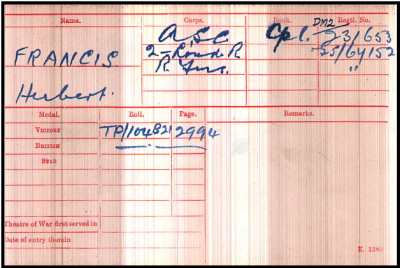 Name. Corps. Rank. Regtl. No.
FRANCIS A.S.C. Cpl. DM2/231653
2-Lond R 25/64152
R. Fus. "
Herbert.
Medal. Roll. Page. Remarks.
VICTORY TP/104B21 2994
BRITISH
STAR
Theatre of War first served in
Date of entry therein
K. 1380